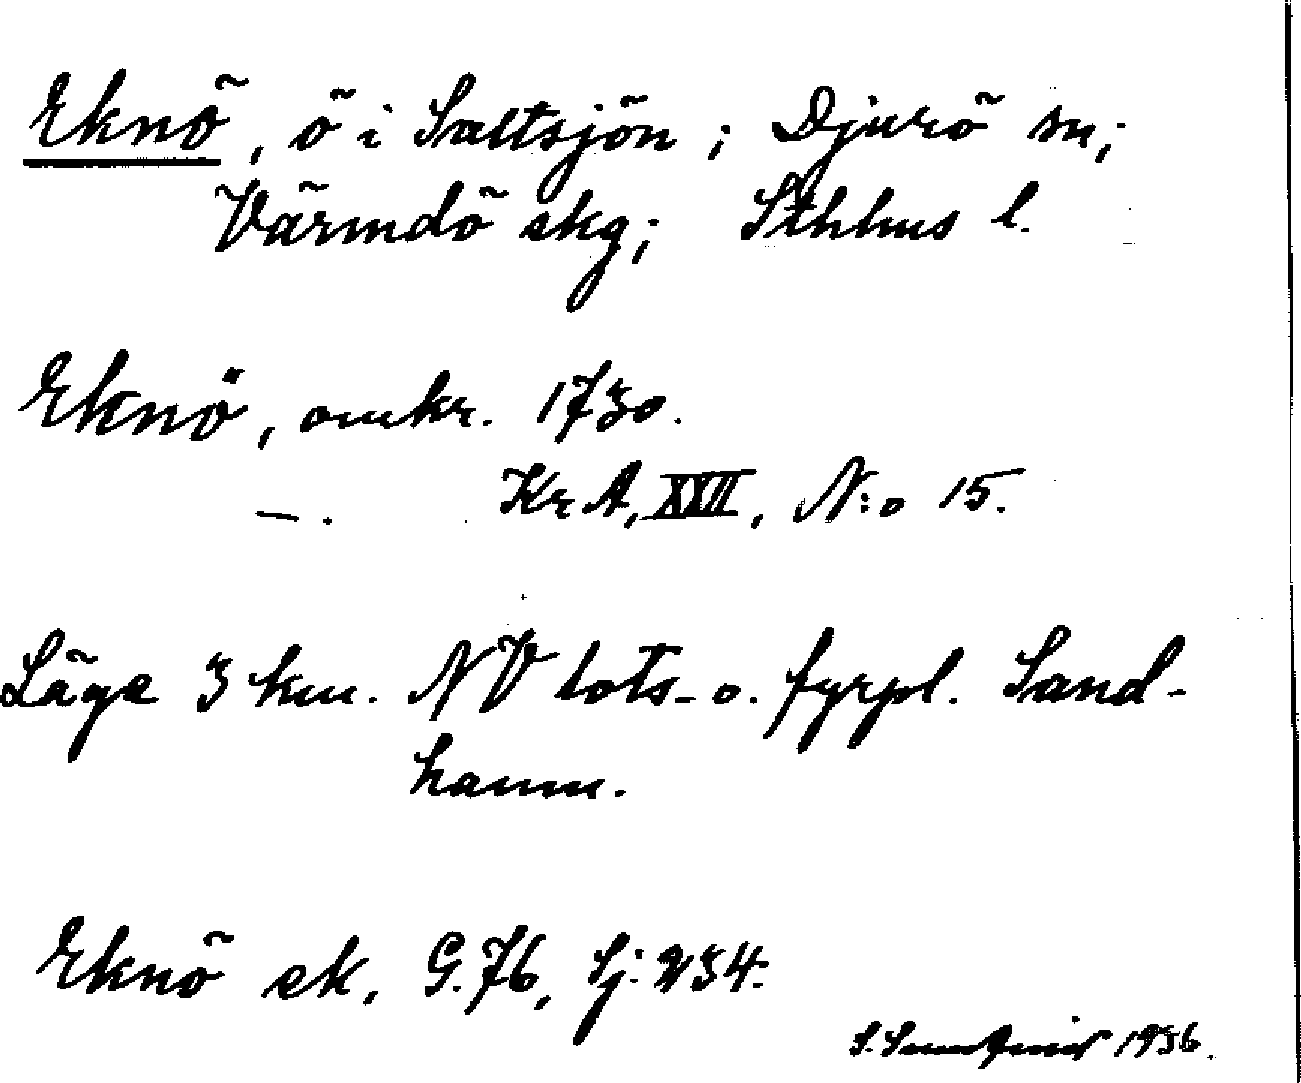 Eknö, ö i Saltsjön; Djurö sn;
Värmdö skg; Sthlms l.
Eknö, omkr. 1730.
—. KrA, XVII, N:o 15.
Läge 3 km. NV lots- o. fyrpl. Sand-
hamn.
Eknö ek. G.76, Sj: 234.
1936.